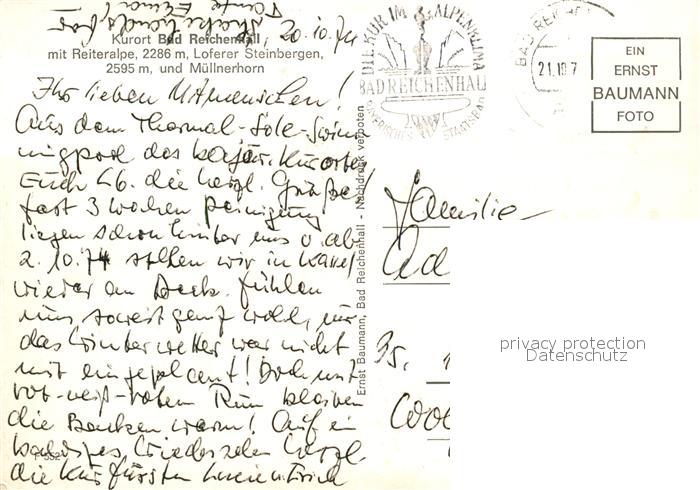 20.10.74
Kurort Bad Reichenhall,
mit Reiteralpe, 2286 m, Loferer Steinbergen,
2595 m, und Müllnerhorn
Ihr lieben
Aus dem Thermal-Sole-Swim-
mingpool des bajuv. Kurortes
Euch die herzl. Grüße!
fast 3 Wochen Peinigung
liegen schon hinter uns u. ab
2.10.74 sollen wir in
wieder an Deck. Fühlen
uns soweit ganz wohl, nur
das Winterwetter war nicht
mit eingeplant! Doch mit
rot-weiß-rotem Rum bleiben
die Backen warm! Auf ein
baldiges Wiedersehen herzl.
die Kurfürsten
P 552
DIE KUR IM ALPENKLIMA
BAD REICHENHALL
BAYERISCHES STAATSBAD
BAD REICHE
21.10.7
EIN
ERNST
BAUMANN
FOTO
Ernst Baumann, Bad Reichenhall - Nachdruck verboten
Familie
Ad
35.
privacy protection
Datenschutz